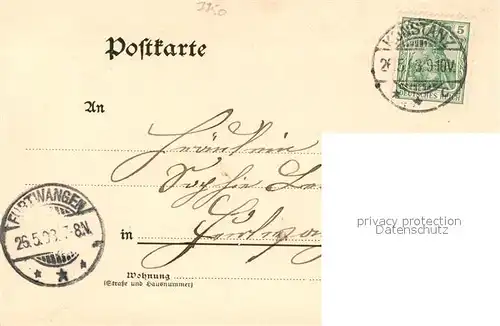 3350
Postkarte
KONSTANZ
26.5.03.9-10V.
c.
5
DEUTSCHES REICH
An
Fräulein
Sophie
FURTWANGEN
26.5.03. 7-8N.
in Furtwa
Wohnung
(Straße und Hausnummer)
privacy protection
Datenschutz